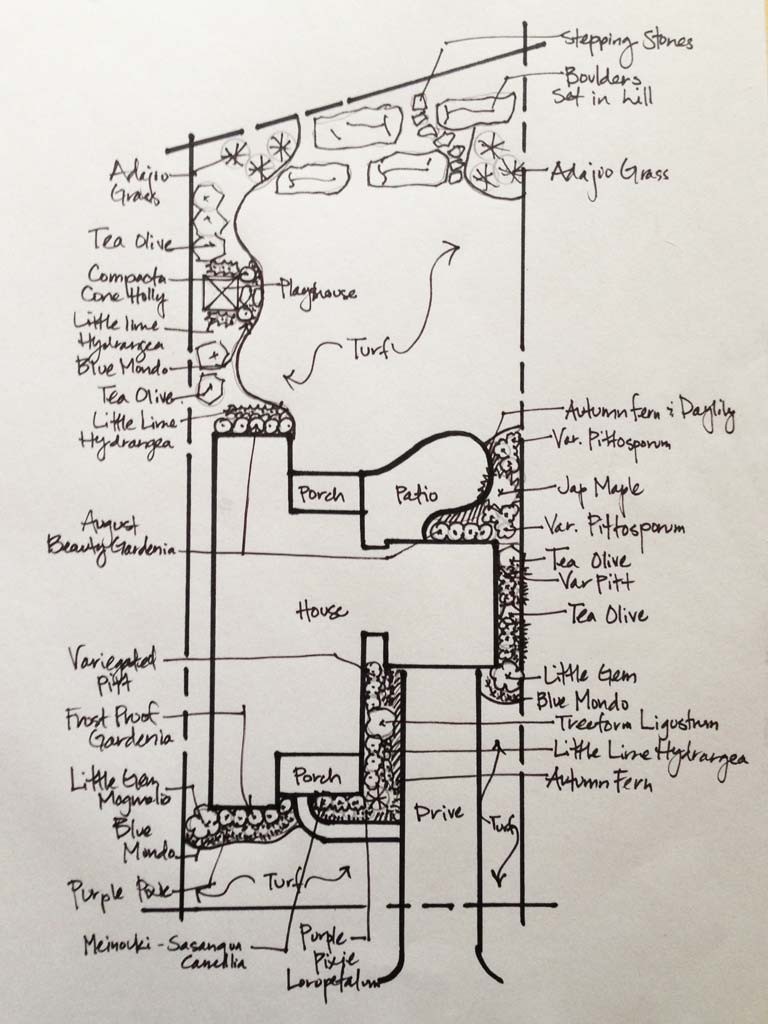 Stepping Stones
Boulders
Set in hill
Adajio
Grass
Adajio Grass
Tea Olive
Compacta
Cone Holly
Playhouse
Little lime
Hydrangea
Blue Mondo
Turf
Tea Olive
Little Lime
Hydrangea
Autumn fern & Daylily
Var. Pittosporum
Porch
Patio
Jap Maple
August
Beauty Gardenia
Var. Pittosporum
Tea Olive
Var Pitt
House
Tea Olive
Variegated
Pitt
Little Gem
Blue Mondo
Frost Proof
Gardenia
Treeform Ligustrum
Little Lime Hydrangea
Porch
Autumn Fern
Little Gem
Magnolia
Drive
Turf
Blue
Mondo
Purple Pixie
Turf
Purple
Pixie
Loropetalum
Sasanqua
Camellia